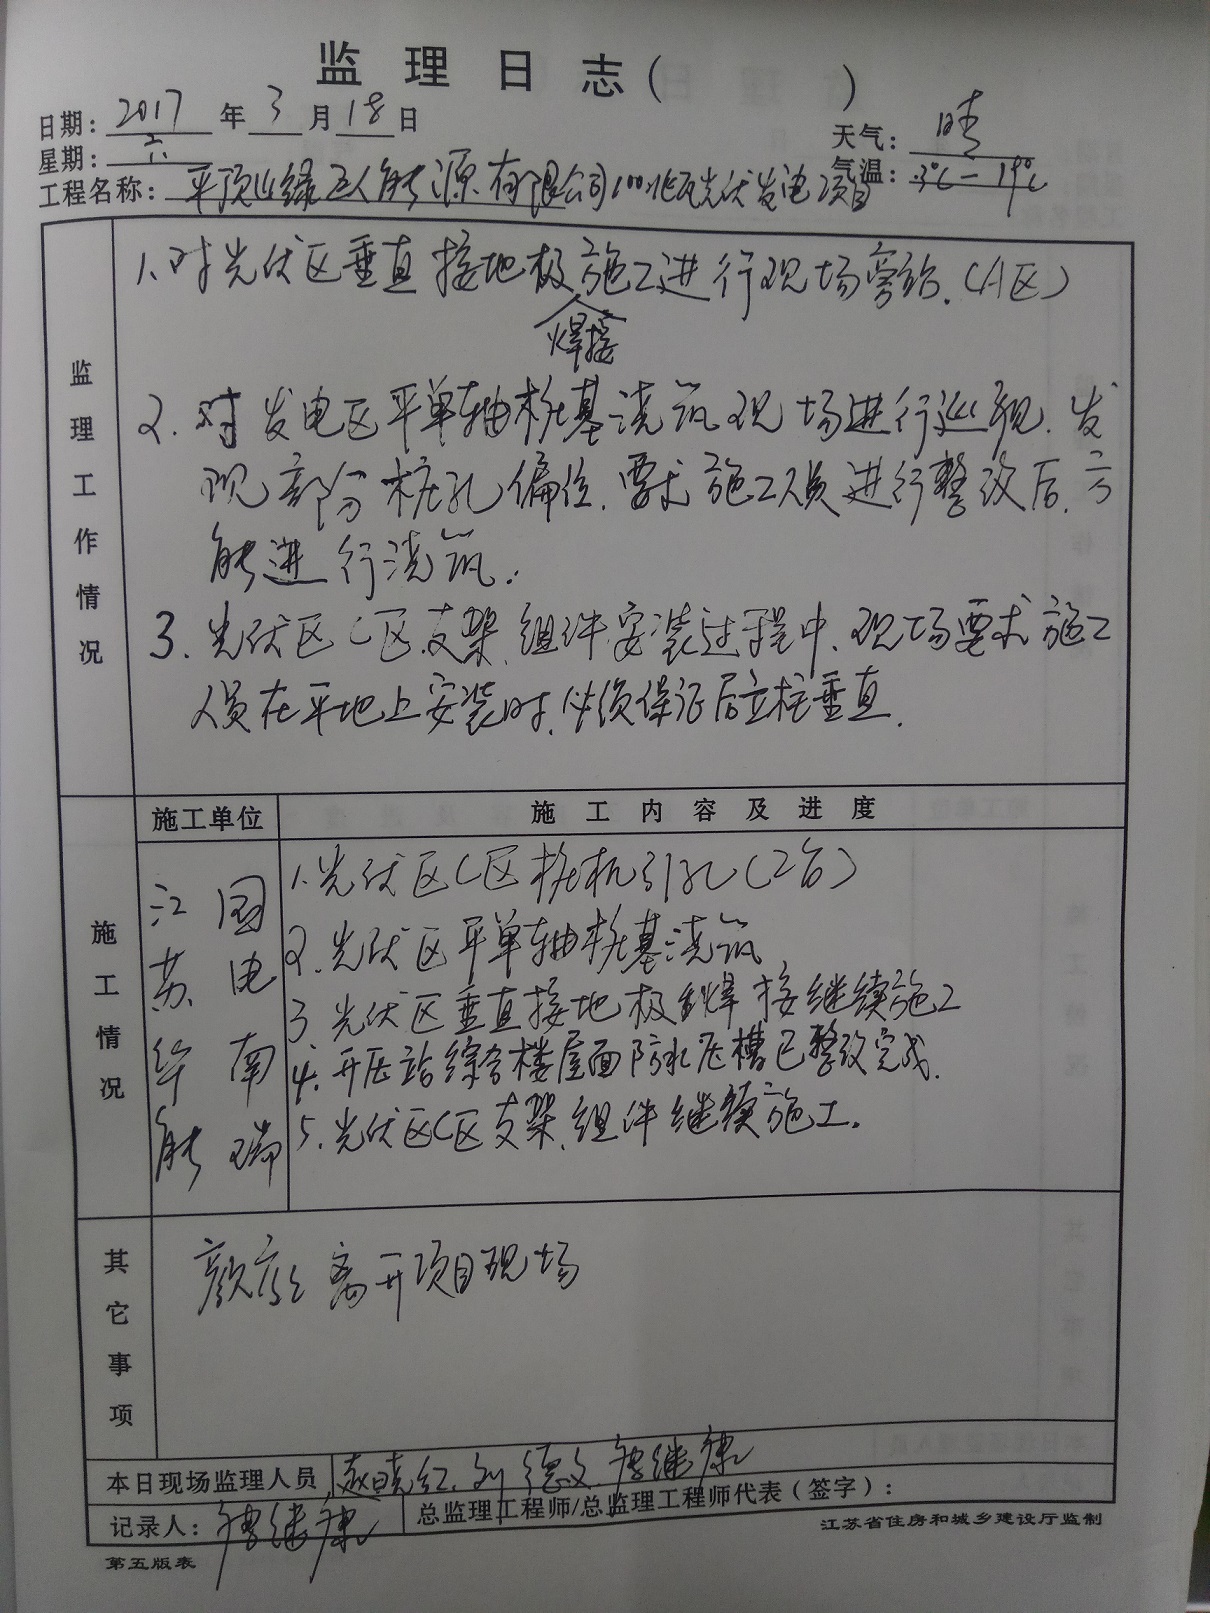 监理日志（ ）
日期：2017年3月18日 天气：晴
星期：六 气温：3℃-19℃
工程名称：平顶山绿巨人能源有限公司100兆瓦光伏发电项目
监理工作情况
1.对光伏区垂直接地极施工进行现场旁站.(A区)
焊接
2.对发电区平单轴桩基浇筑现场进行巡视.发
现部分桩孔偏位.要求施工人员进行整改后.方
能进行浇筑.
3.光伏区C区支架.组件安装过程中.现场要求施工
人员在平地上安装时.必须保证后立柱垂直.
施工单位 施工内容及进度
施工情况
国电南瑞
江苏华能
1.光伏区C区桩机引孔(2台)
2.光伏区平单轴桩基浇筑
3.光伏区垂直接地极焊接继续施工
4.开压站综合楼屋面防水压槽已整改完成.
5.光伏区C区支架.组件继续施工.
其它事项
离开项目现场
本日现场监理人员 赵晓红.刘德文.唐继康
记录人：唐继康 总监理工程师/总监理工程师代表（签字）：
第五版表 江苏省住房和城乡建设厅监制